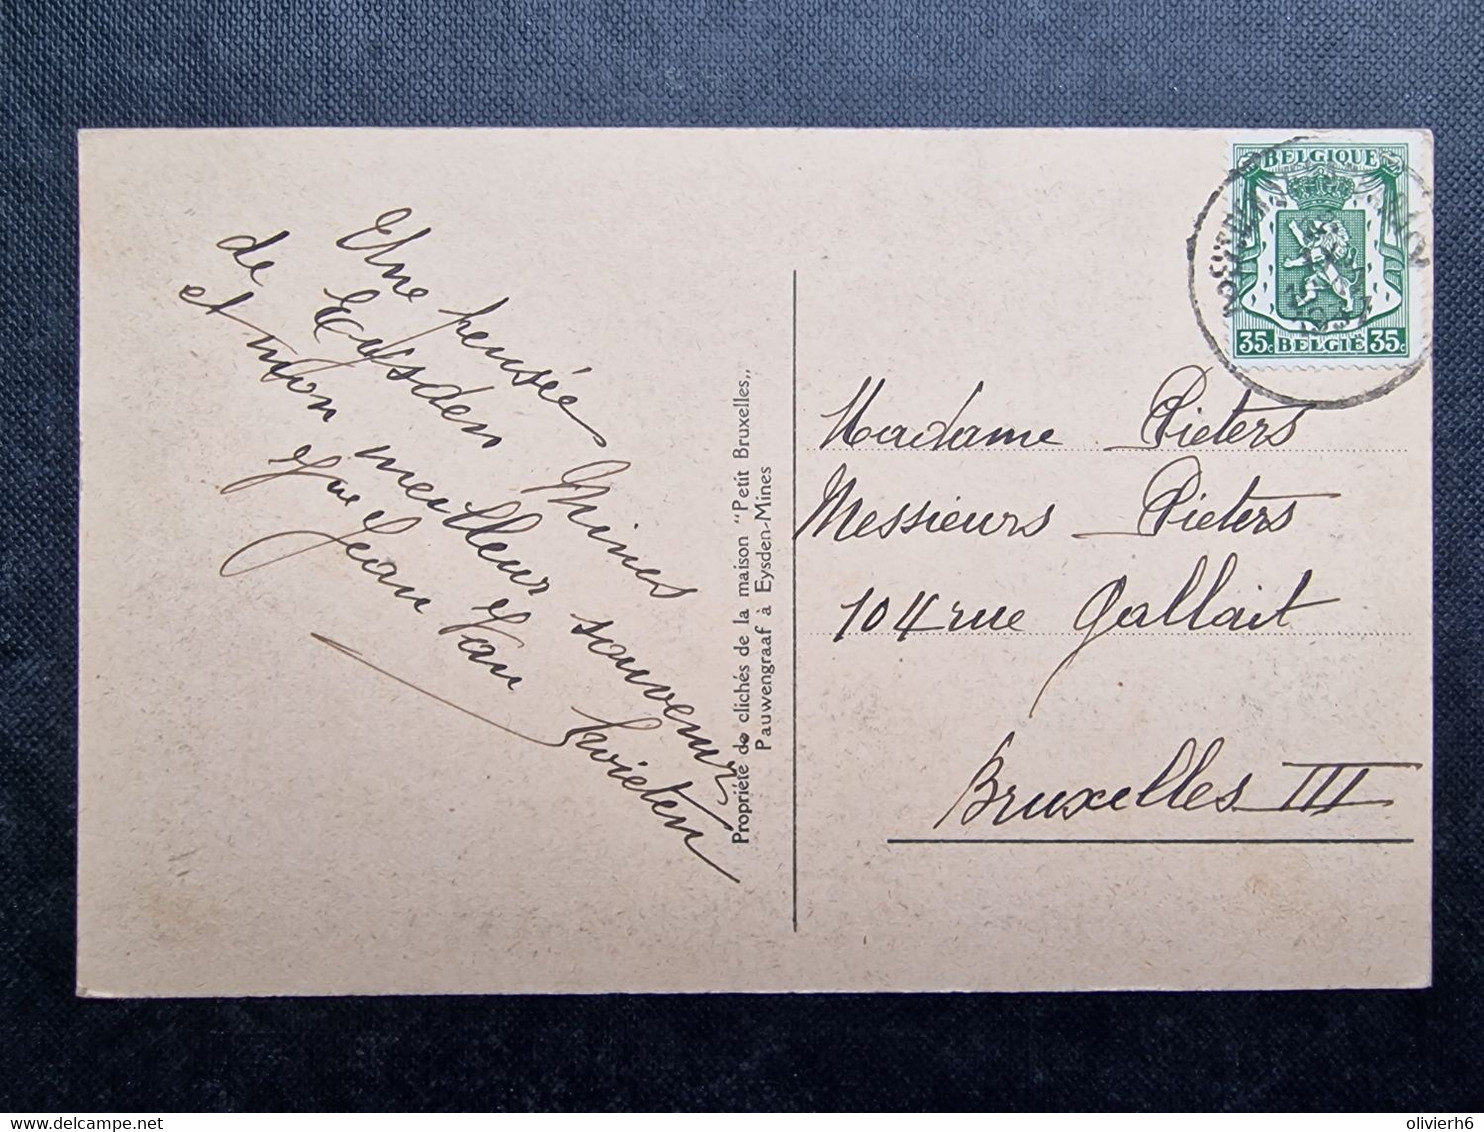 Une pensée
de Eysden Mines
et mon meilleur souvenir
Jean Van Swieten
Propriété de clichés de la maison "Petit Bruxelles,,
Pauwengraaf à Eysden-Mines
BELGIQUE
35c BELGIË 35c
1937
Madame Pieters
Messieurs Pieters
104 rue Gallait
Bruxelles III
delcampe.net
olivierh6